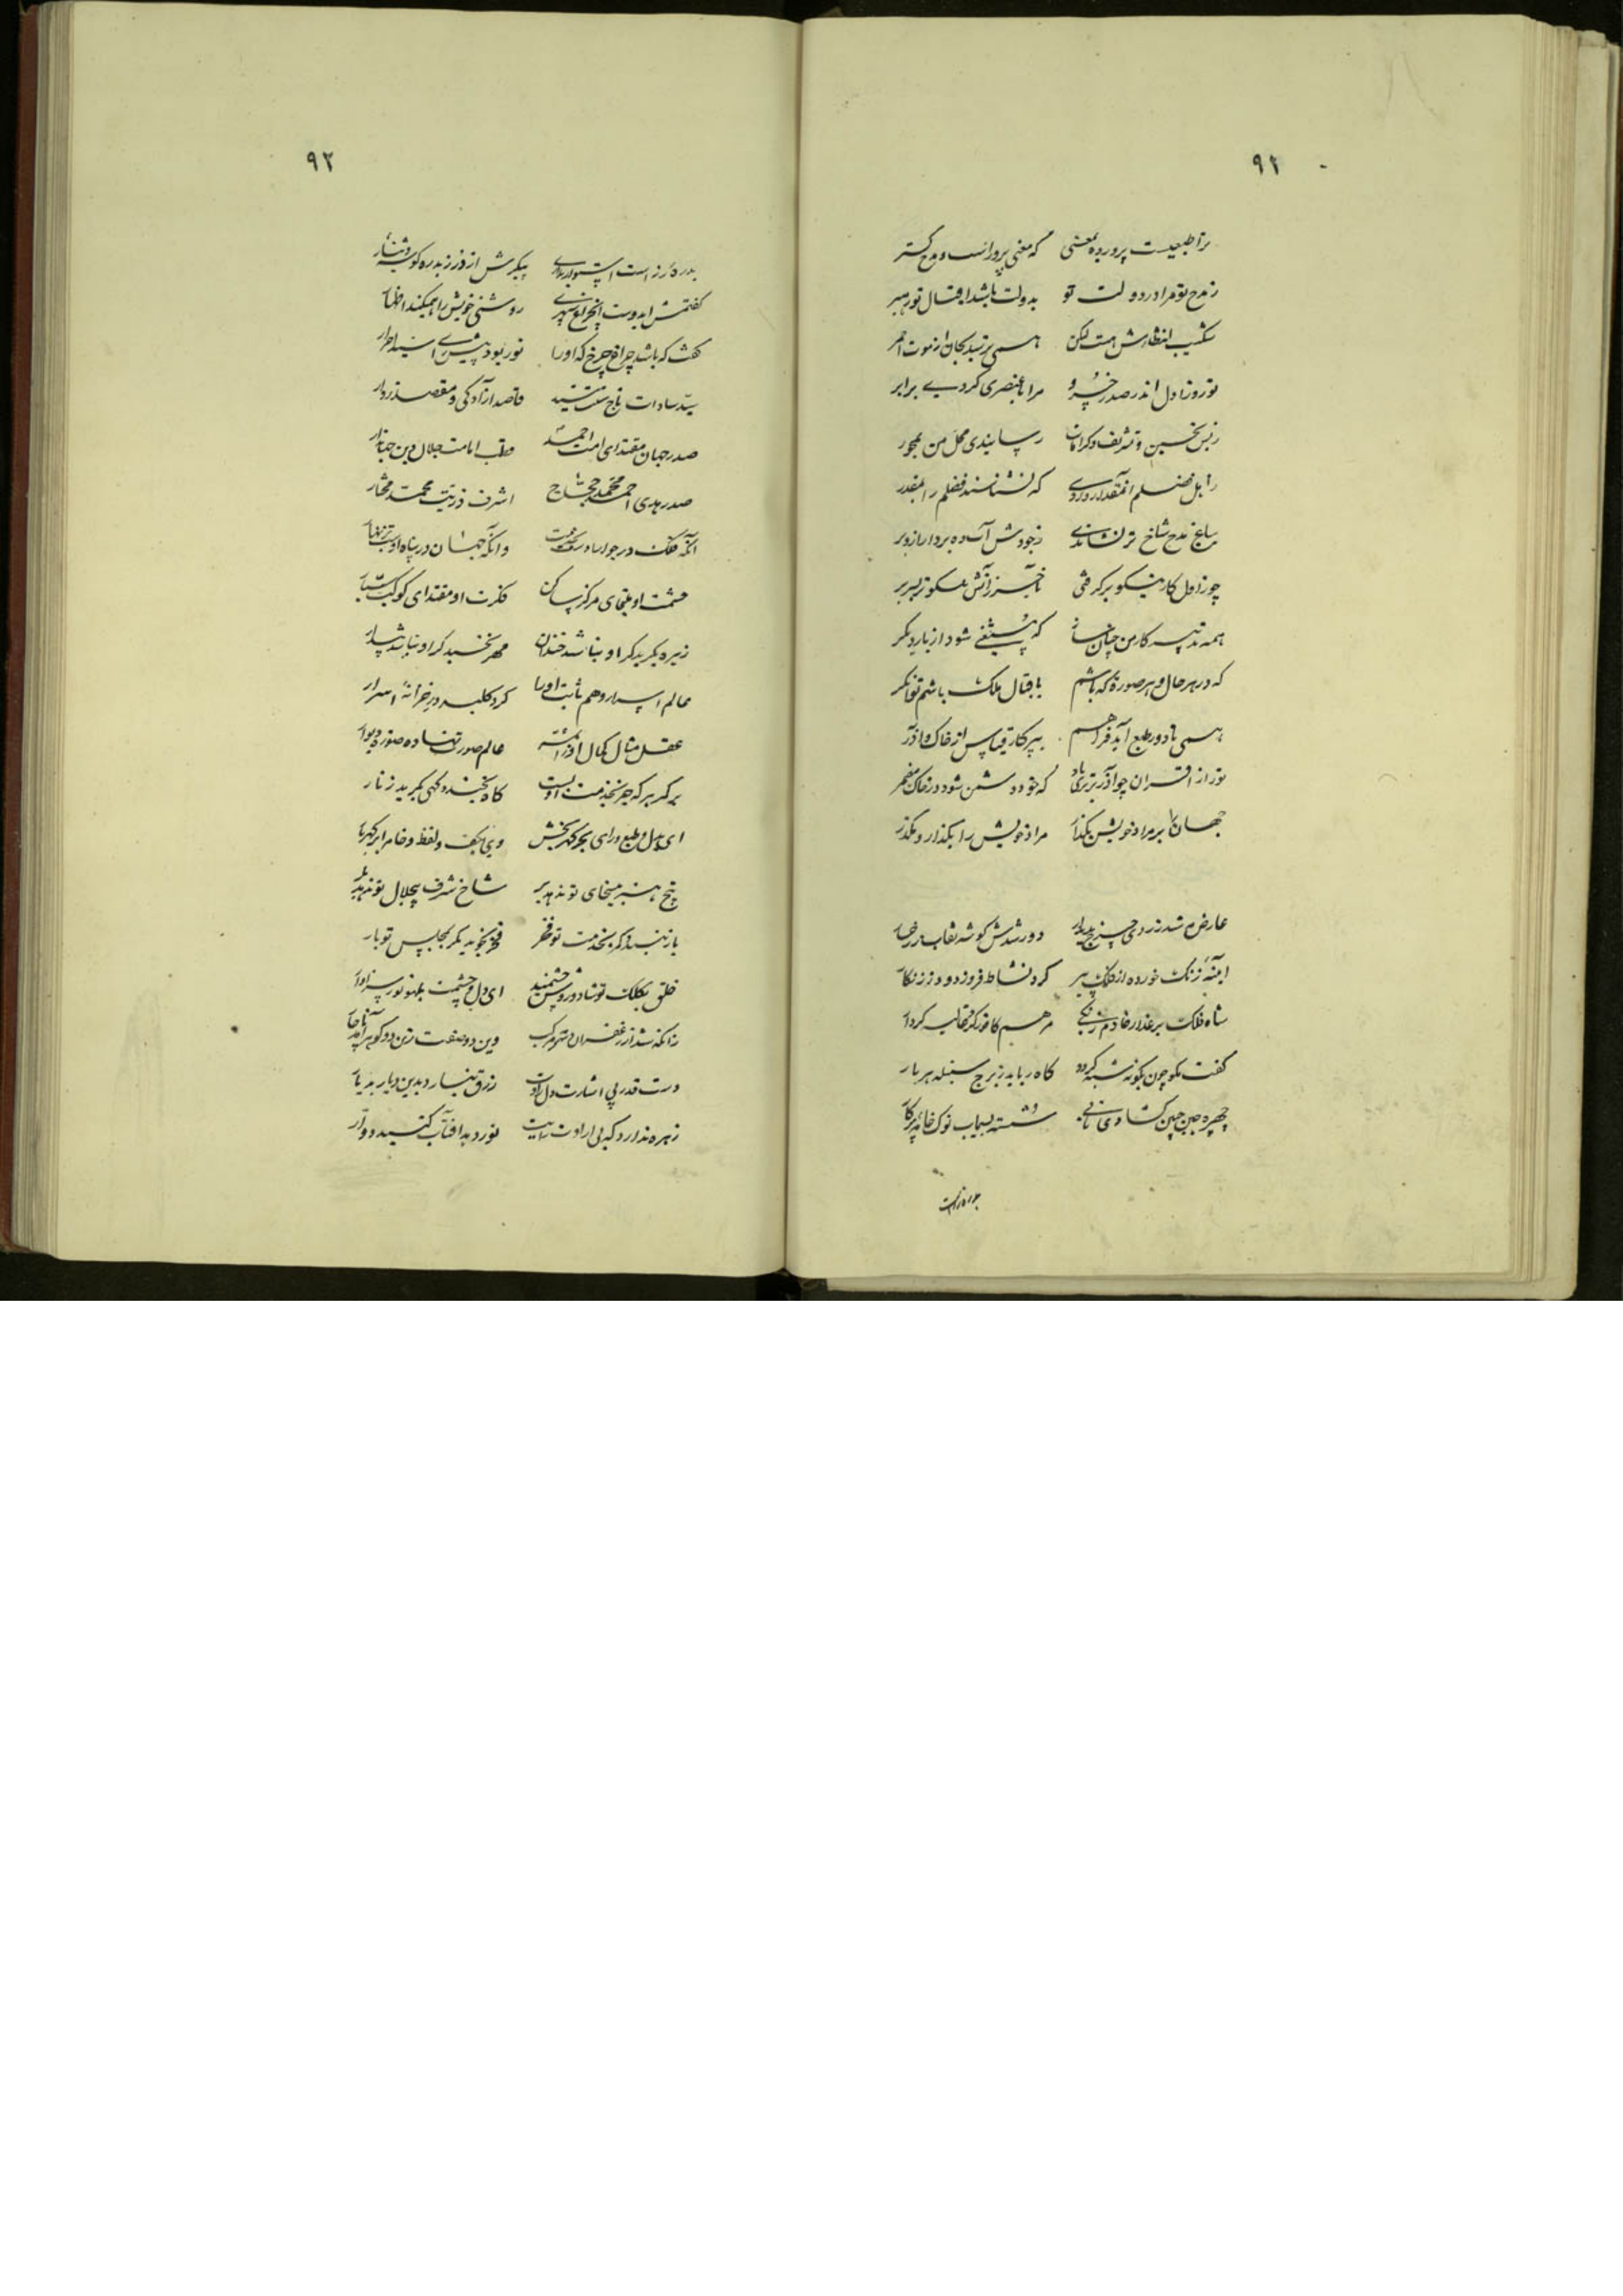 ٩٢
ترا طبعیست پرورده بمعنی که معنی پرورانست و مدح گستر
ز مدح تو مرا در دولت تو بدولت باشد اقبال تو رهبر
شکیب انتظارش هست لیکن همی ترسد بجان از موت احمر
تو روز اول اندر صدر خسرو مرا با عنصری کردی برابر
ز بس تحسین و تشریف و کرامات رسانیدی محل من بمحور
که نشناسند فضلم را بمقدر
بباغ مدح شاخ تر نشاندی ز جودش آب ده بردار ازو بر
چو ز اول کار نیکو برگرفتی بآخر زانش نیکوتر بسر بر
همه تدبیر کار من چنان ساز که مستغنی شود از بار دیگر
که در هر حال و هر صورة که باشم باقبال ملک باشم توانگر
همی تا دور طبع آید فراهم بپرگار قیاس از خاک و آذر
تو از اقران چو آذر برتری باد که خود دشمن شود در خاک مضمر
جهان را بر مراد خویش بگذار مراد خویش را بگذار و بگذر
عارض شد ز روی چرخ پدیدار دور شدش گوشه نقاب ز رخسار
آینه زنگ خورده از فلک پیر کرد نشاط فروز دود ز زنگار
شاه فلک بر عذار خادم زنگی مرهم کافور کرد غالیه کردار
گفت نکو چون بگونه شبه گردد کاه رباید ز برج سنبله هر بار
چهره چین چین گشاد شسته بسیماب نوک خامه پرگار
بدره زرست
٩٣
بدره زر است پیکرش از زر ز بدره گوشه دینار
گفتمش ایدوست این چراغ سپهری روشنی خویش را همیکند اظهار
گفت که باشد چراغ چرخ که او را نور بود پیش رای سید احرار
سید سادات تاج قاصد آزادگی و مقصد زوار
صدر جهان مقتدای امت احمد قطب امامت جلال دین جهاندار
صدر هدی احمد محمد حجاج اشرف ذریت محمد مختار
آنکه فلک در جوار وانکه جهان در پناه اوست
حشمت او ملجای مرکز ساکن فکرت او مقتدای کوکب سیار
زهره بگرید گر او نباشد خندان مهر بخسبد گر او نباشد بیدار
عالم اسرار و هم ثابت او را کرد کلید در خزانهٔ اسرار
عقل مثال کمال عالم صورت نهاده صورة دیوار
بر کمر هر که جز بخدمت او بست کاه بخندد گهی بگرید زنار
ای بدل و طبع و رای بحر گهربخش وی بکف و لفظ و خامه ابر گهربار
بیخ هنر بی سخای تو ندهد بر شاخ شرف بی جلال تو ندهد بار
باز نبندد کمر بخدمت تو فخر فخر نجوید مگر بمجلس تو بار
خلق بکلک تو شاد ای دل و چشمت
زانکه شد از زعفران و مشک مرکب وین دو صفت زین دو گوهر
دست قدر بی اشارت دل رادت رزق نیارد بدین دیار بدیار
زهره ندارد که بی ارادت رایت نور دهد آفتاب گنبد دوار